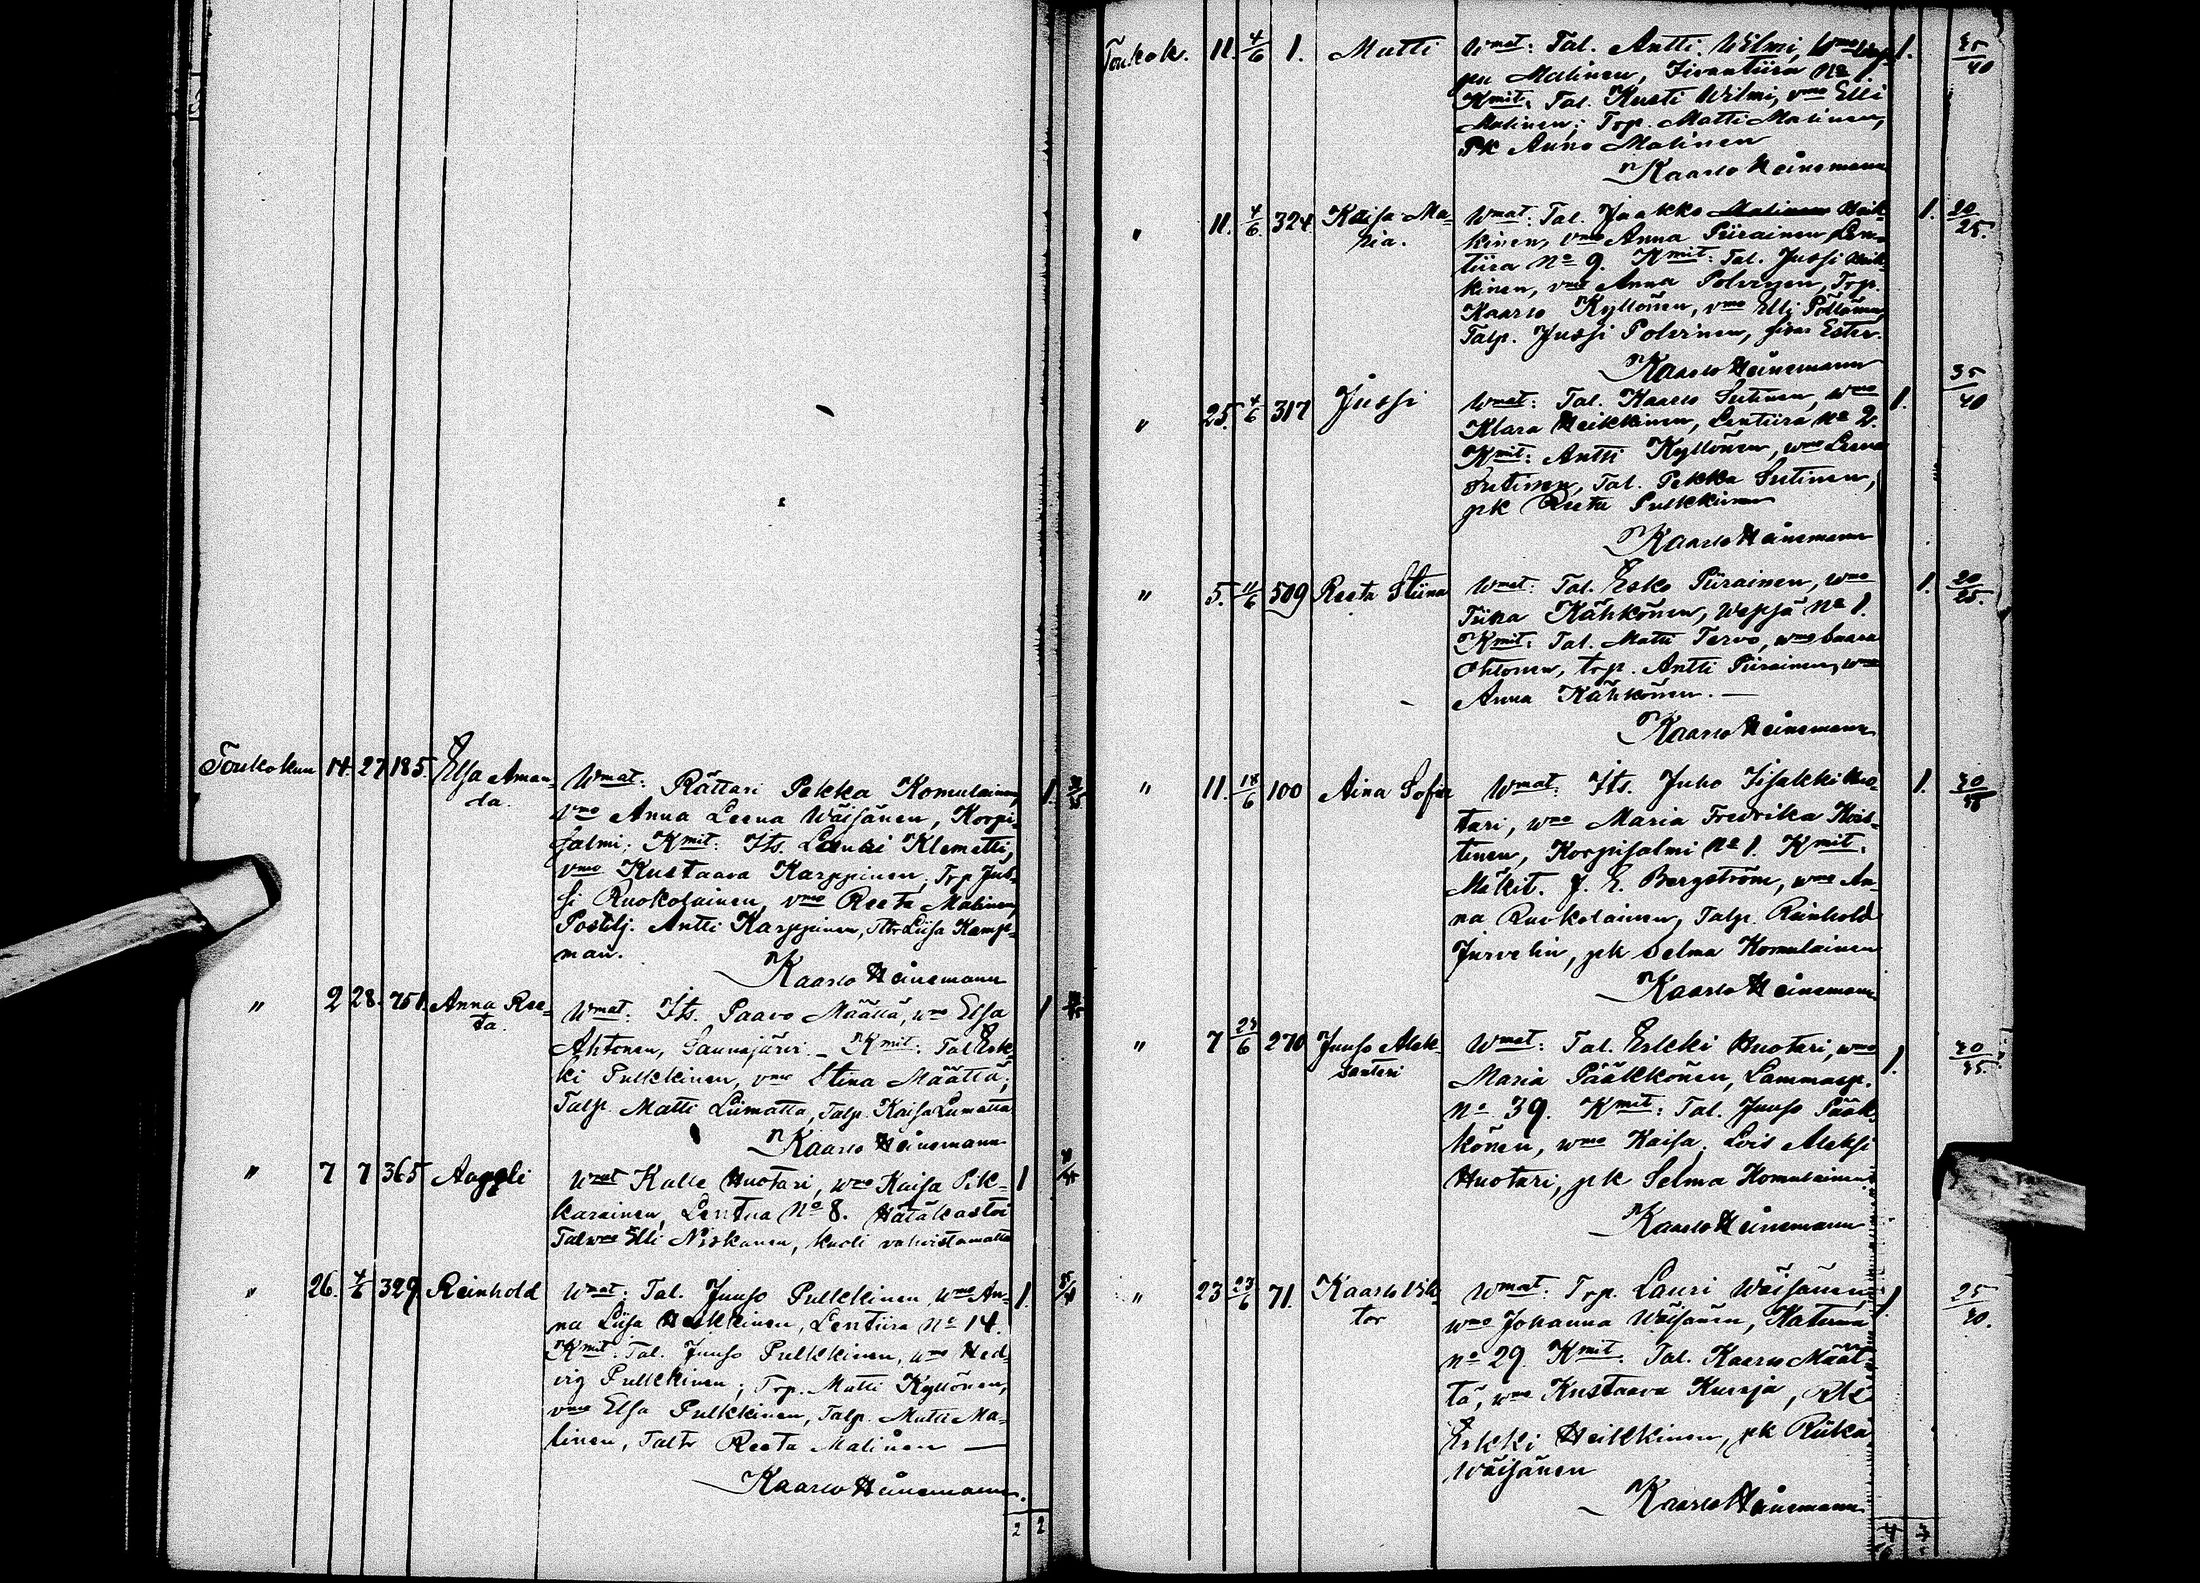 Toukokuu 14. 27 185. Elsa Aman-
da.
Wmat: Rättäri Pekka Komulainen, 1.
vmo Anna Leena Wäisänen, Korpi-
salmi; Kmit: Its. Klemetti,
vmo Kustaava Karppinen; Trp Jus-
si Ruokolainen, vmo Reeta Malinen,
Postilj. Antti Karppinen, Liisa Kamp-
man.
Kaarlo Heinemann
" 2 28. 751. Anna Ree-
ta.
Wmat: Its. Paavo Määttä, wmo Elsa 1
Ahtonen, Saunajärvi – Kmit: Tal Erk-
ki Pulkkinen, vmo Stina Määttä;
Talp. Matti Liimatta, Talp. Kaisa Liimatta
Kaarlo Heinemann
" 7 7 365 Aappeli
Wmat Kalle Huotari, wmo Kaisa Pik- 1
karainen, Lentua No 8. Hätäkastoi
Talwmo Elli Niskanen, kuoli vahvistamatta
" 26. 4/6 329 Reinhold
Wmat: Tal. Juuso Pulkkinen, wmo An- 1.
na Liisa Heikkinen, Lentiira No 14.
Kmit: Tal. Juuso Pulkkinen, wmo Hed-
vig Pulkkinen; Trp. Matti Kyllönen,
vmo Elsa Pulkkinen, Talp. Matti Ma-
linen, Taltr Reeta Malinen —
Kaarlo Heinemann
2 2
Toukok. 11. 4/6 1. Matti
Wmat: Tal. Antti Wilmi, Wmo 1. 35/40
Malinen, No 1.
Kmit: Tal. Kusti Wilmi, vmo Elli
Malinen; Trp. Matti Malinen,
Pk Anna Malinen
Kaarlo Heinemann
" 11. 4/6. 324 Kaisa Ma-
ria.
Wmat: Tal. Jaakko Malinen Heik- 1. 20/25.
kinen, vmo Anna Piirainen, Len-
tiira No 9. Kmit: Tal. Jussi Heik-
kinen, vmo Anna Polvinen, Trp.
Kaarlo Kyllönen, vmo Elli Pöllänen,
Talp. Jussi Polvinen, sisar Ester.
Kaarlo Heinemann
" 25. 4/6 317 Jussi
Wmat: Tal. Kaarlo Sutinen, wmo 1. 35/40
Klara Heikkinen, Lentiira No 2.
Kmit: Antti Kyllönen, wmo Leena
Sutinen, Tal. Pekka Sutinen,
pk Reeta Pulkkinen
Kaarlo Heinemann
" 5. 11/6 509 Reeta Stiina
Wmat: Tal. Esko Piirainen, wmo 1. 20/25.
Tiina Kähkönen, Wepsä No 1.
Kmit: Tal. Matti Tervo, wmo Saara
Ohtonen, trp. Antti Piirainen, wmo
Anna Kähkönen. —
Kaarlo Heinemann
" 11. 18/6 100 Aina Sofia
Wmat: Its. Juho Iisakki Huo- 1.
tari, wmo Maria Fredrika Kois-
tinen, Korpisalmi No 1. Kmit.
Mäkit. J. E. Bergström, wmo An-
na Ruokolainen, Talp. Reinhold
Jurvelin, pk Selma Komulainen
Kaarlo Heinemann
" 7 23/6 270 Juuso Alek-
santeri
Wmat: Tal. Erkki Huotari, wmo 1.
Maria Pääkkönen, Lammasp.
No 39. Kmit: Tal. Juuso Pääk-
könen, wmo Kaisa; Lois Aleksi
Huotari, pk Selma Komulainen
Kaarlo Heinemann
" 23 23/6 71. Kaarlo Vik-
tor
Wmat: Trp. Lauri Wäisänen, 1. 25/30.
wmo Johanna Wäisänen, Katerma
no 29 Kmit: Tal. Kaarlo Määt-
tä, wmo Kustaava Kurvja,
Erkki Heikkinen, pk Riika
Wäisänen
Kaarlo Heinemann
4 3